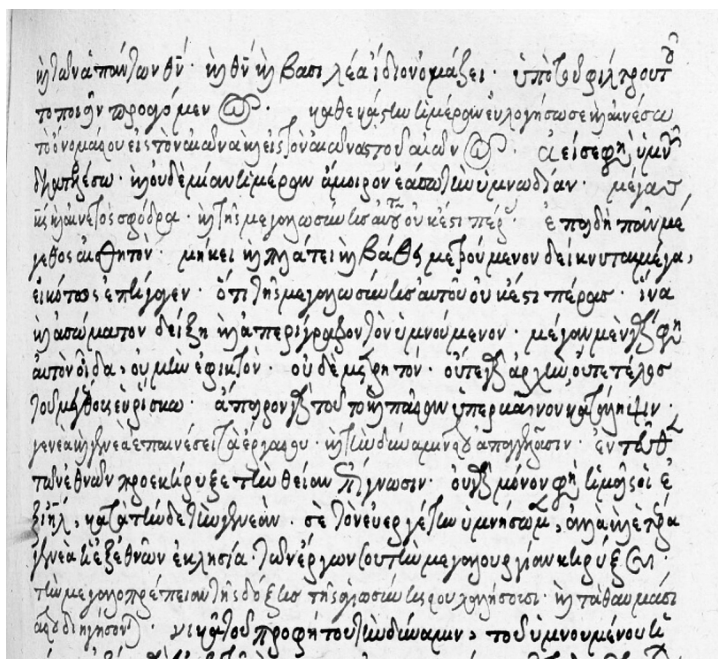 καὶ τῶν ἁπάντων θν̄· καὶ θν̄ καὶ βασιλέα ἴδιον ὀνομάζει· ὑπὸ τοῦ φίλτρου τοῦ
το ποιεῖν προαγόμενος· καθεκάστην ἡμέραν εὐλογήσω σε καὶ αἰνέσω
τὸ ὄνομά σου εἰς τὸν αἰῶνα καὶ εἰς τὸν αἰῶνα τοῦ αἰῶνος· ἀεί σε φησὶν ὑμνῶν
διατελέσω· καὶ οὐδεμίαν ἡμέραν ἄμοιρον ἐάσω τῶν ὑμνωδιῶν· μέγας
κς̄ καὶ αἰνετὸς σφόδρα· καὶ τῆς μεγαλωσύνης αὐτοῦ οὐκ ἔστι πέρας· ἐπειδὴ πᾶν μέ
γεθος αἰσθητὸν· μήκει καὶ πλάτει καὶ βάθει μετρούμενον δείκνυται μέγα,
εἰκότως ἐπήγαγεν· ὅτι τῆς μεγαλωσύνης αὐτοῦ οὐκ ἔστι πέρας· ἵνα
καὶ ἀσώματον δείξη καὶ ἀπερίγραφον τὸν ὑμνούμενον· μέγαν μὲν γὰρ φησὶν
αὐτὸν οἶδα, οὐ μὴν ἐφικτὸν· οὐδὲ μετρητόν· οὔτε γὰρ ἀρχὴν, οὔτε τέλος
τοῦ μεγέθους εὑρίσκω· ἄπειρον γὰρ τοῦτο καὶ πᾶσαν ὑπερβαῖνον κατάληψιν·
γενεὰ καὶ γενεὰ ἐπαινέσει τὰ ἔργα σου· καὶ τὴν δύναμίν σου ἀπαγγελοῦσιν· ἐνταῦθα
τῶν ἐθνῶν προεκήρυξε τὴν θείαν ἐπίγνωσιν· οὐ γὰρ μόνον φησὶν ἡμεῖς οἱ ἐ
ξ ιηλ̄, κατὰ τήνδε τὴν γενεὰν· σὲ τὸν εὐεργέτην ὑμνήσωμεν, ἀλλὰ καὶ ἑτέρα
γενεὰ ἡ ἐξ ἐθνῶν ἐκκλησία· τῶν ἔργων σου τὴν μεγαλουργίαν κηρύξει·
τὴν μεγαλοπρέπειαν τῆς δόξης τῆς ἁγιωσύνης σου λαλήσουσι· καὶ τὰ θαυμάσι
ά σου διηγήσονται· τοῦ προφήτου τὴν δύναμιν, τοῦ ὑμνουμένου ἡ